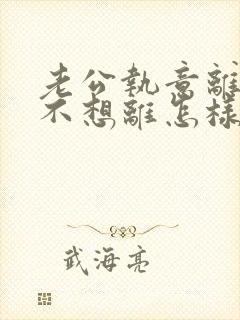 老公執意離
不想離怎樣
武海亮